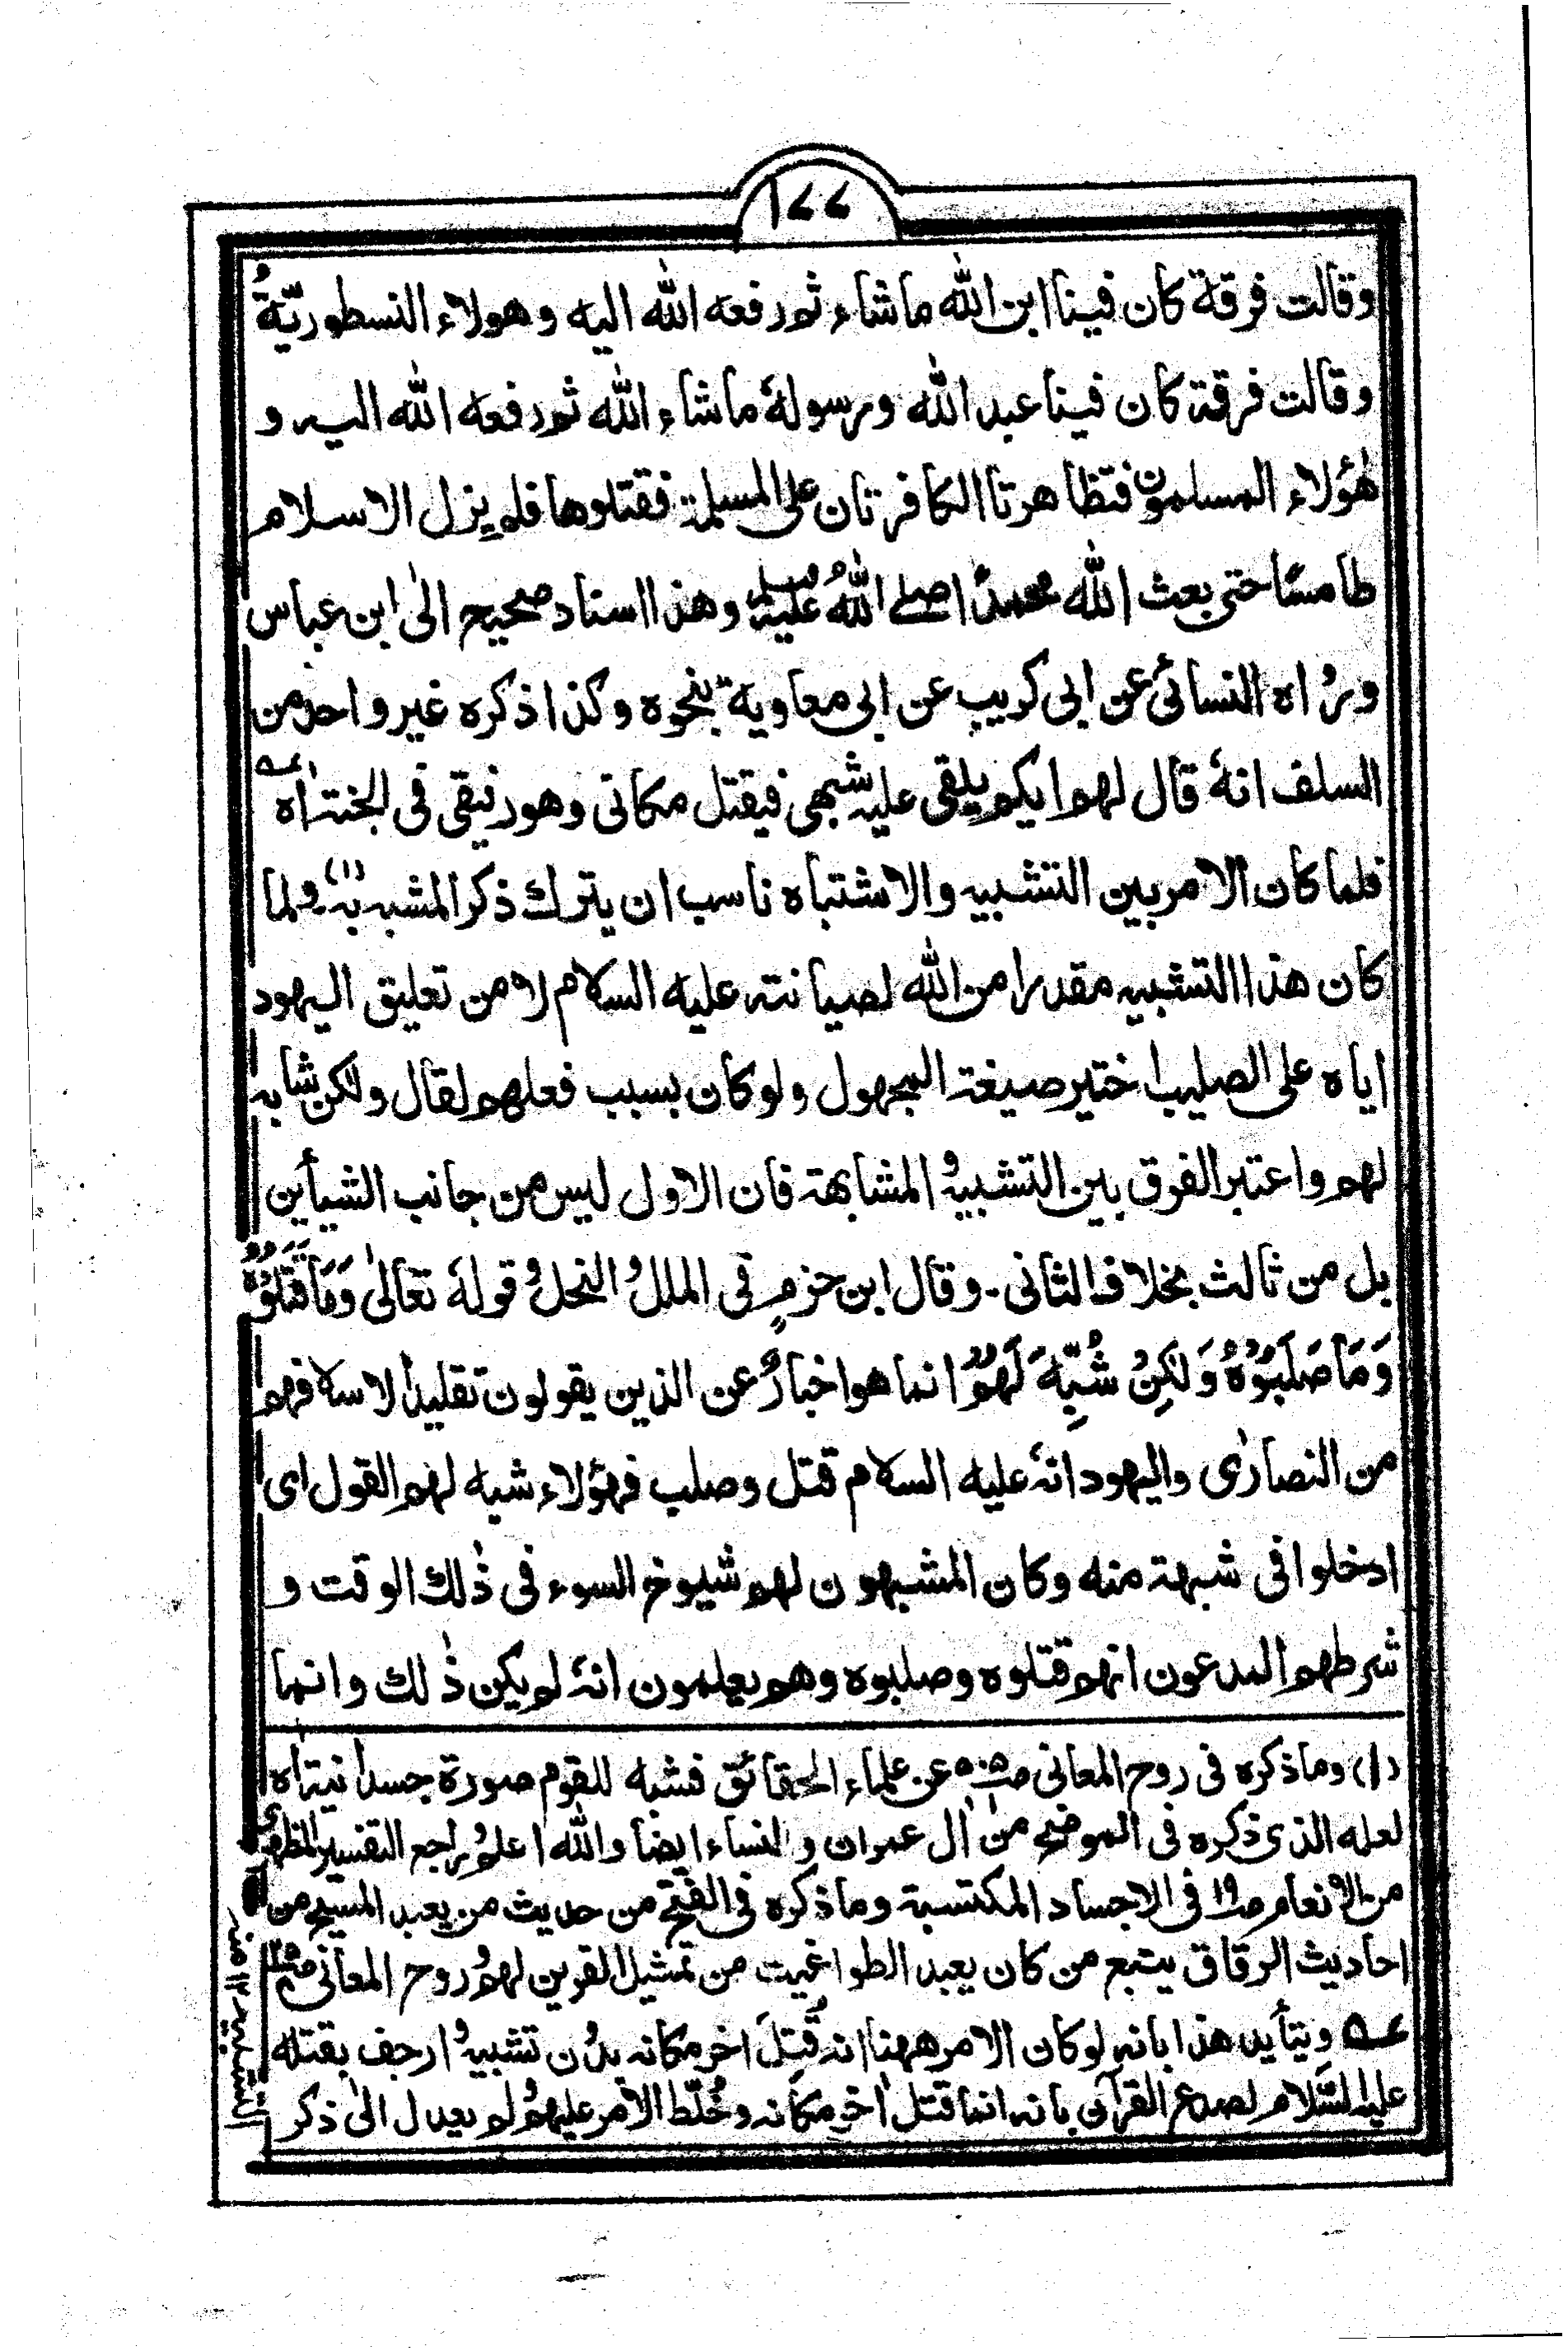 ١٧٧
وقالت فرقة كان فينا ابن الله ما شاء ثم رفعه الله اليه وهولاء النسطوريّةُ
وقالت فرقة كان فينا عبد الله ورسولهٗ ما شاء الله ثم رفعه الله اليه و
هٰؤلاء المسلمون فتظاهرتا الكافرتان على المسلمة فقتلوها فلم يزل الاسلام
طامسًا حتى بعث الله محمدًا صلے اللهُ عليه وسلم وهذا اسناد صحيح الىٰ ابن عباس
ورواه النسائى عن ابى كريب عن ابى معاوية بنحوه وكذا ذكره غير واحد من
السلف انهٗ قال لهم ايكم يلقى عليه شبهى فيقتل مكانى وهو رفيقى فى الجنة اه
فلما كان الامر بين التشبيه والاشتباه ناسب ان يترك ذكر المشبه به (١) ولما
كان هذا التشبيه مقدرا من الله لصيانته عليه السلام لا من تعليق اليهود
اياه على الصليب اختير صيغة المجهول ولو كان بسبب فعلهم لقال ولكن شابه
لهم واعتبر الفرق بين التشبيه و المشابهة فان الاول ليس من جانب الشيأين
بل من ثالث بخلاف الثانى ـ وقال ابن حزمٍ فى الملل و النحل و قولهٗ تعالىٰ وَمَا قَتَلُوْهُ
وَمَا صَلَبُوْهُ وَلٰكِنْ شُبِّهَ لَهُمْ انما هو اخبارٌ عن الذين يقولون تقليدا لاسلافهم
من النصارىٰ واليهود انهٗ عليه السلام قتل وصلب فهؤلاء شبه لهم القول اى
ادخلوا فى شبهة منه وكان المشبهون لهم شيوخ السوء فى ذٰلك الوقت و
شرطهم المدعون انهم قتلوه وصلبوه وهم يعلمون انهٗ لم يكن ذٰلك وانما
(١) وما ذكره فى روح المعانى عن علماء الحقائق فشبه للقوم صورة جسدانية اه
لعله الذى ذكره فى الموضح من اٰل عمران والنساء ايضا والله اعلم و راجع التفسير المظهرى
من الانعام فى الاجساد المكتسبة وما ذكره فى الفتح من حديث من يعبد المسيح من
احاديث الرقاق يتبع من كان يعبد الطواغيت من تمثيل القرين لهم و روح المعانى
عـه ويتأيد هذا بانه لو كان الامر ههنا انه قُتِلَ اخر مكانه بدون تشبيه و ارجف بقتله
عليه السَّلام لصدع القرآن بانه انما قتل اٰخر مكانه وخُلّط الامر عليهم و لم يعدل الىٰ ذكر
التشبيه ١٢ منه